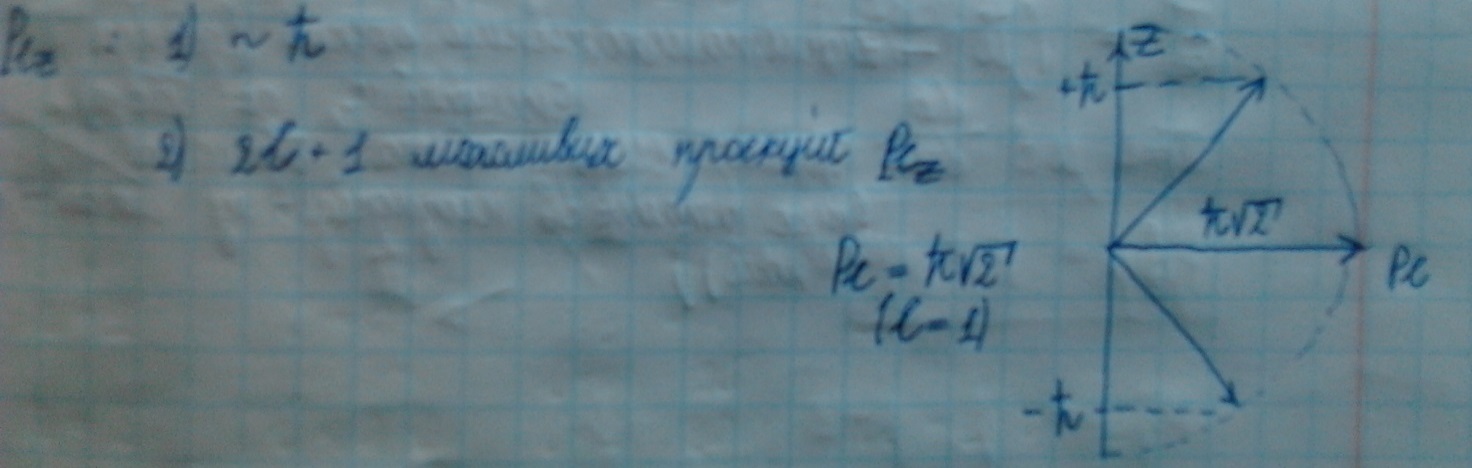 Pℓz : 1) ~ ħ
2) 2ℓ+1 можливих проекцій Pℓz
Pℓ = ħ√2
(ℓ=1)
z
+ħ
ħ√2
Pℓ
-ħ